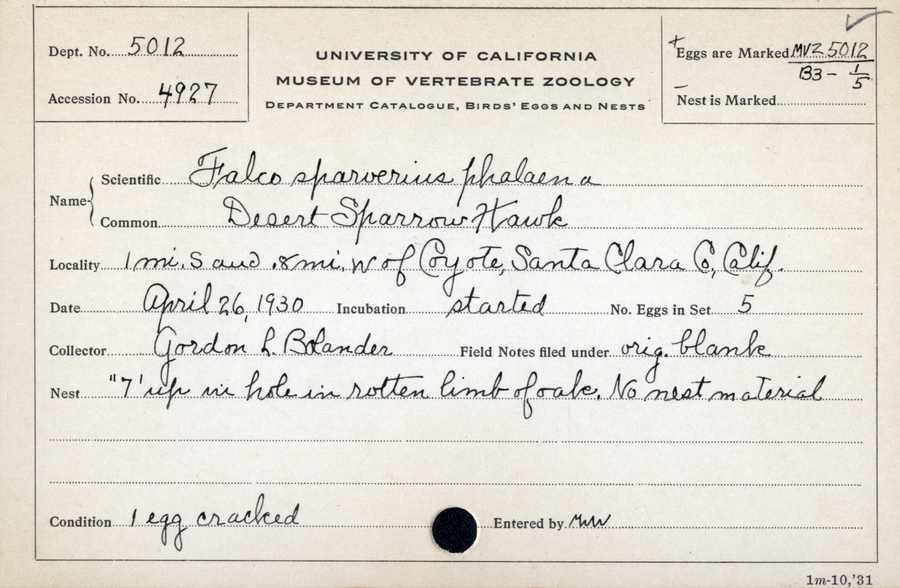 Dept. No. 5012
Accession No. 4927
UNIVERSITY OF CALIFORNIA
MUSEUM OF VERTEBRATE ZOOLOGY
DEPARTMENT CATALOGUE, BIRDS' EGGS AND NESTS
+ Eggs are Marked MVZ 5012
B3 - 1/5
– Nest is Marked
Name { Scientific Falco sparverius phalaena
Common Desert Sparrow Hawk
Locality 1 mi. S and .8 mi. W of Coyote, Santa Clara Co, Calif.
Date April 26, 1930 Incubation started No. Eggs in Set 5
Collector Gordon L. Bolander Field Notes filed under orig. blank
Nest "7' up in hole in rotten limb of oak. No nest material
Condition 1 egg cracked Entered by
1m-10,'31